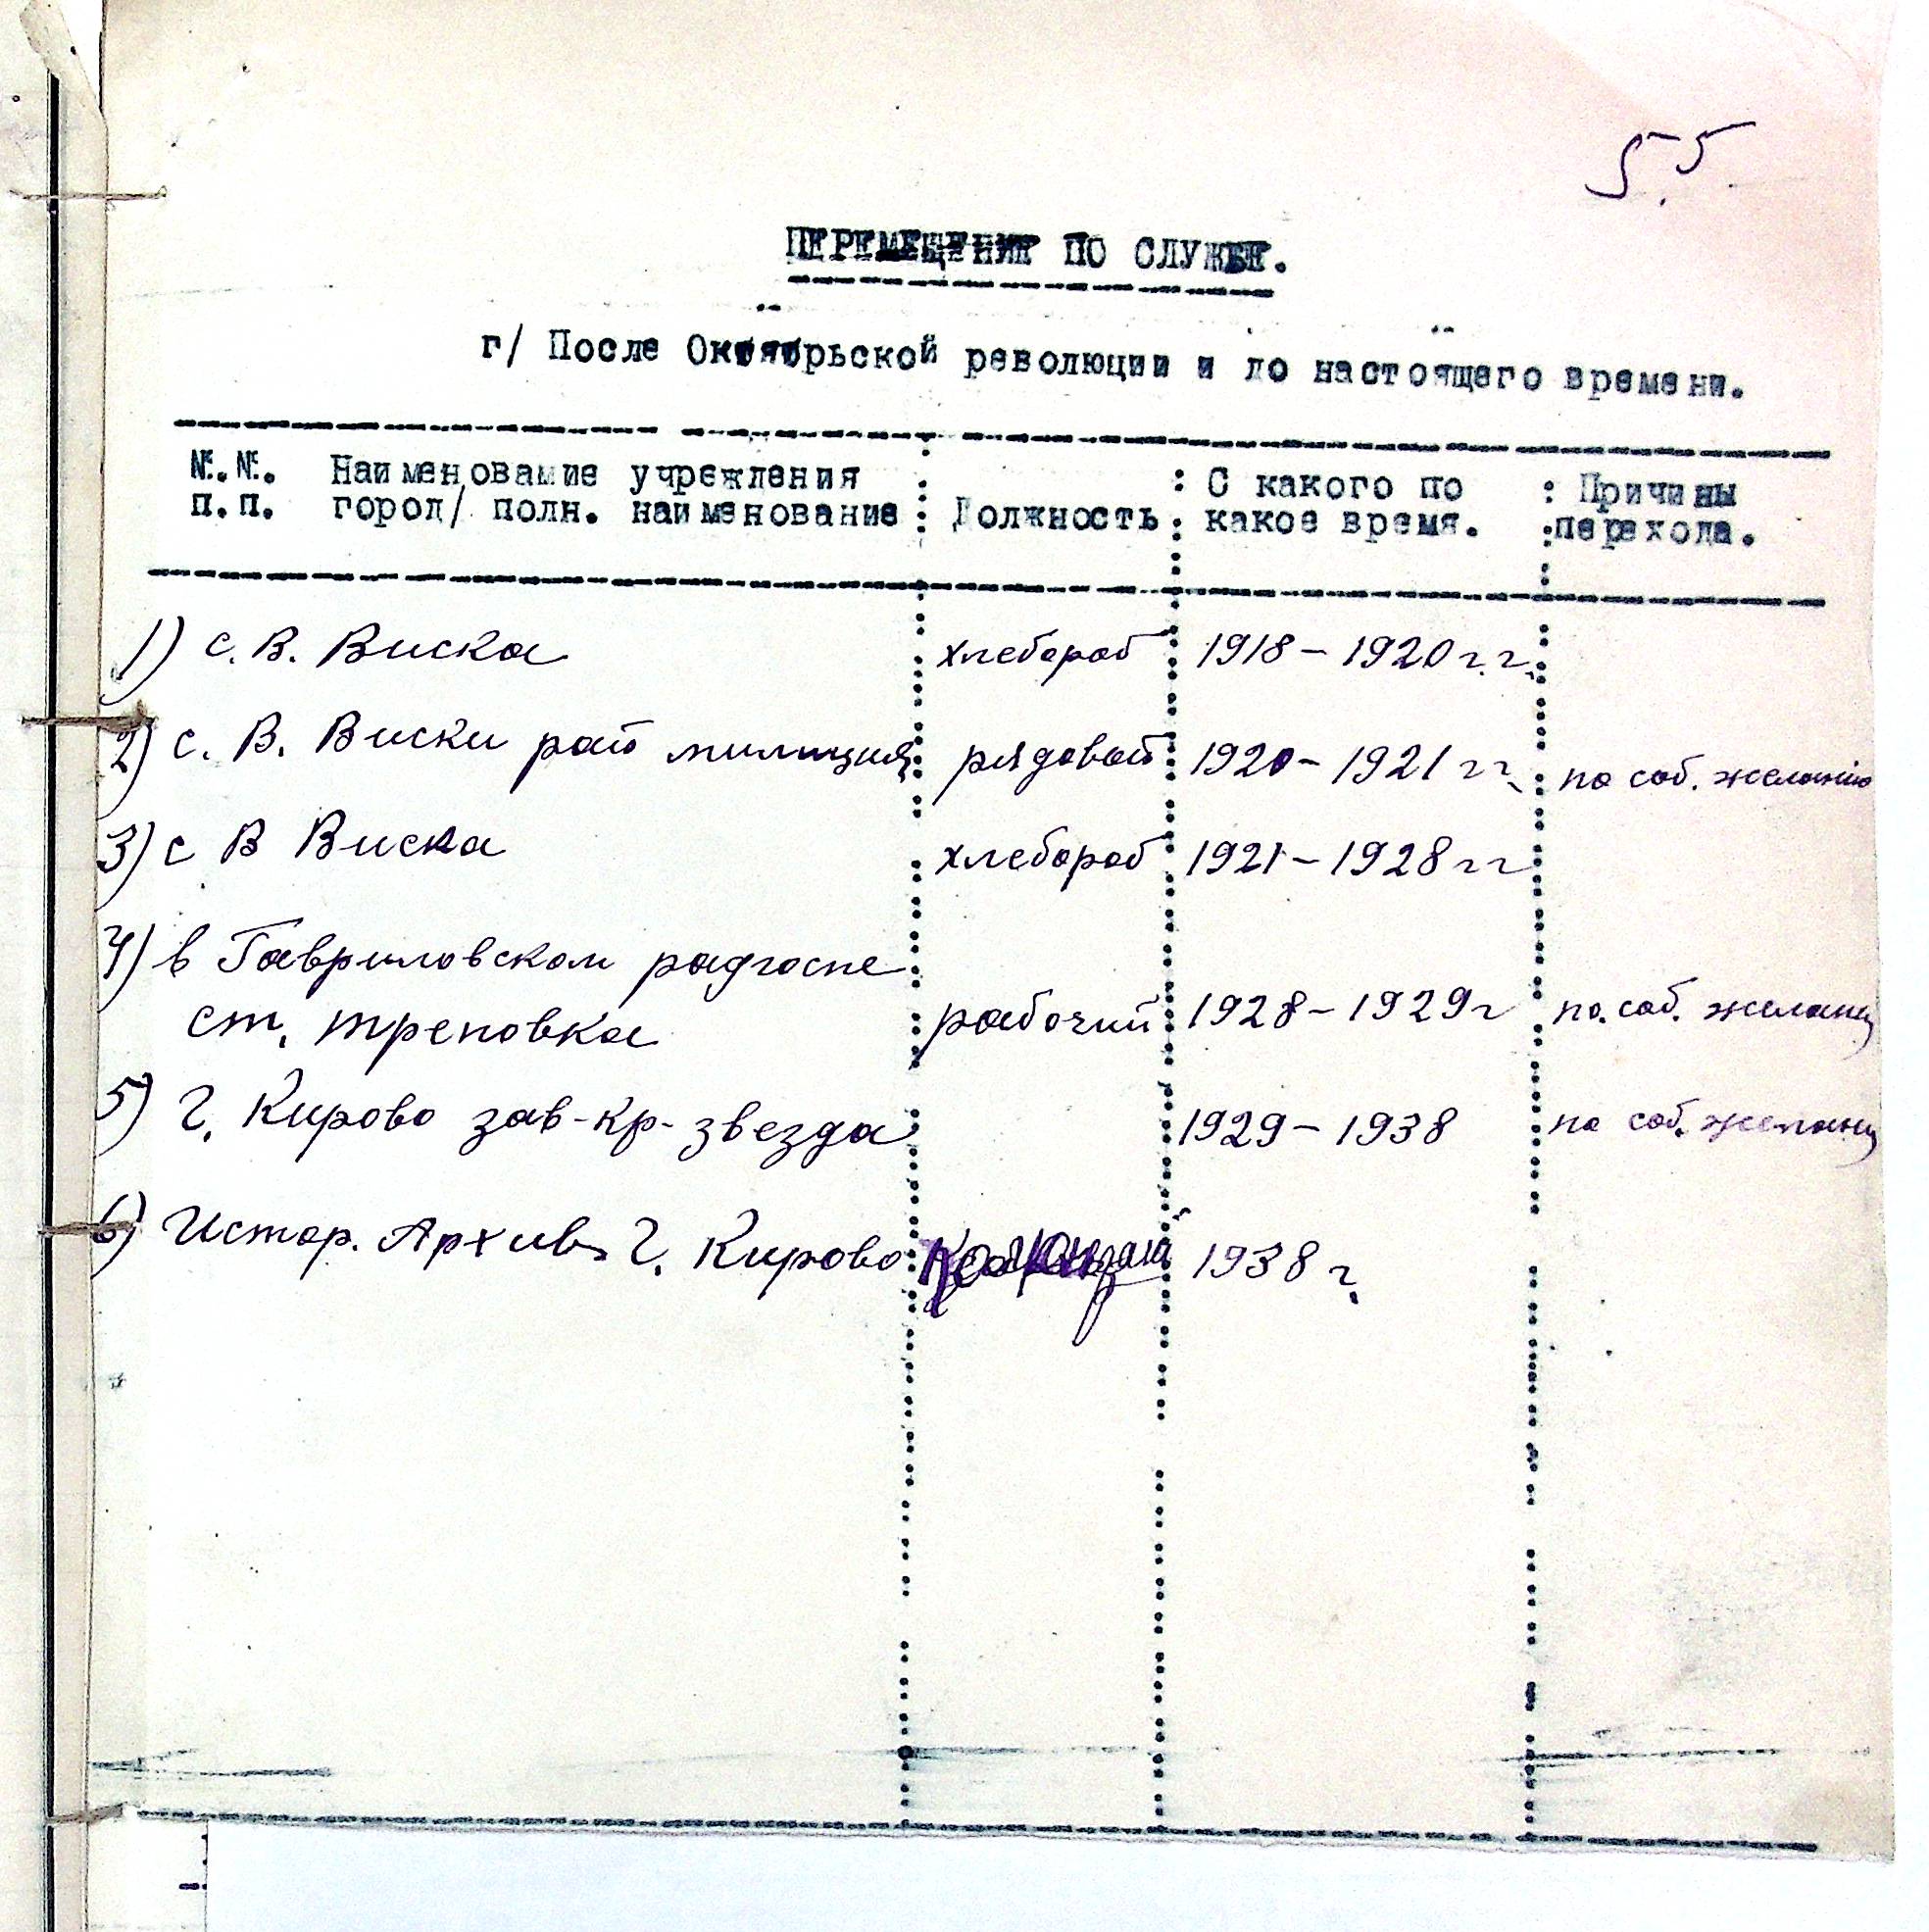 55
ПЕРЕМЕЩЕНИЕ ПО СЛУЖБЕ.
г/ После Октябрьской революции и до настоящего времени.
№.№. Наименование учреждения : С какого по : Причины
п.п. город/ полн. наименование : Должность : какое время. : перехода.
1) с. В. Виска хлебороб 1918 – 1920 г.г.
2) с. В. Виски рай милиция рядовой 1920 – 1921 гг. по соб. желанию
3) с В Виска хлебороб 1921 – 1928 гг
4) в Гавриловском радгоспе
ст. треповка рабочий 1928 – 1929 г по. соб. желани
5) г. Кирово зав-кр-звезда 1929 – 1938 по соб. желани
6) Истор. Архив г. Кирово 1938 г.